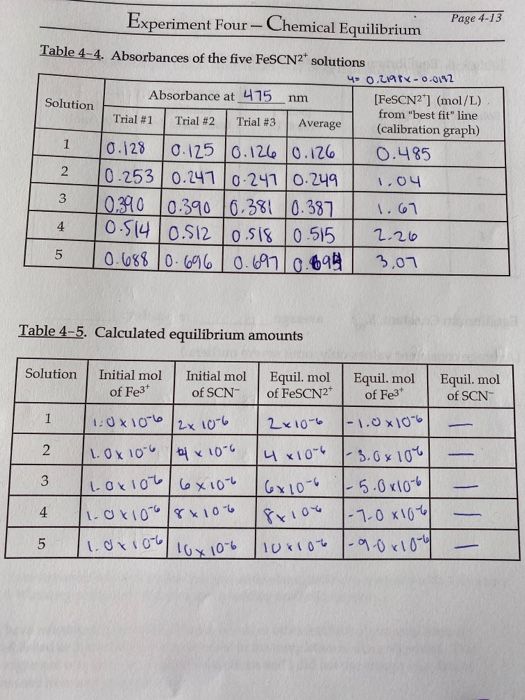 Experiment Four – Chemical Equilibrium Page 4-13
Table 4–4. Absorbances of the five FeSCN²⁺ solutions
y= 0.2198x-0.0192
Solution Absorbance at 475 nm [FeSCN²⁺] (mol/L) from "best fit" line (calibration graph)
Trial #1 Trial #2 Trial #3 Average
1 0.128 0.125 0.126 0.126 0.485
2 0.253 0.247 0.247 0.249 1.04
3 0.390 0.390 0.381 0.387 1.67
4 0.514 0.512 0.518 0.515 2.26
5 0.688 0.696 0.697 0.694 3.07
Table 4–5. Calculated equilibrium amounts
Solution Initial mol of Fe³⁺ Initial mol of SCN⁻ Equil. mol of FeSCN²⁺ Equil. mol of Fe³⁺ Equil. mol of SCN⁻
1 1.0x10⁻⁶ 2x10⁻⁶ 2x10⁻⁶ -1.0x10⁻⁶ —
2 1.0x10⁻⁶ 4x10⁻⁶ 4x10⁻⁶ -3.0x10⁻⁶ —
3 1.0x10⁻⁶ 6x10⁻⁶ 6x10⁻⁶ -5.0x10⁻⁶ —
4 1.0x10⁻⁶ 8x10⁻⁶ 8x10⁻⁶ -7.0x10⁻⁶ —
5 1.0x10⁻⁶ 10x10⁻⁶ 10x10⁻⁶ -9.0x10⁻⁶ —